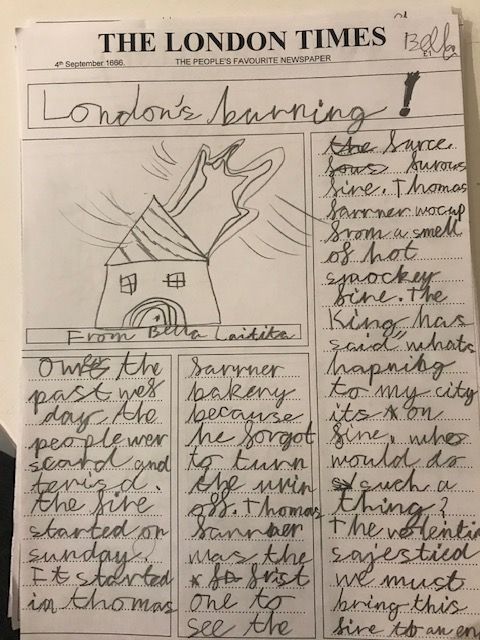 THE LONDON TIMES
Bella
4th September 1666.
THE PEOPLE'S FAVOURITE NEWSPAPER
£1
London's burning!
From Bella Laitita
Over the
past wes
day the
people wer
scard and
terisd.
the fire
started on
sunday.
It started
in thomas
farrner
bakery
because
he forgot
to turn
the uvin
off. Thomas
farrner
was the
frist
one to
see the
farce
furous
fire. Thomas
farrner wocup
from a smell
of hot
smockey
fire. The
King has
said" whats
hapnibg
to my city
its on
fire. who
would do
such a
thing?
The
sajestied
we must
bring this
fire to an en